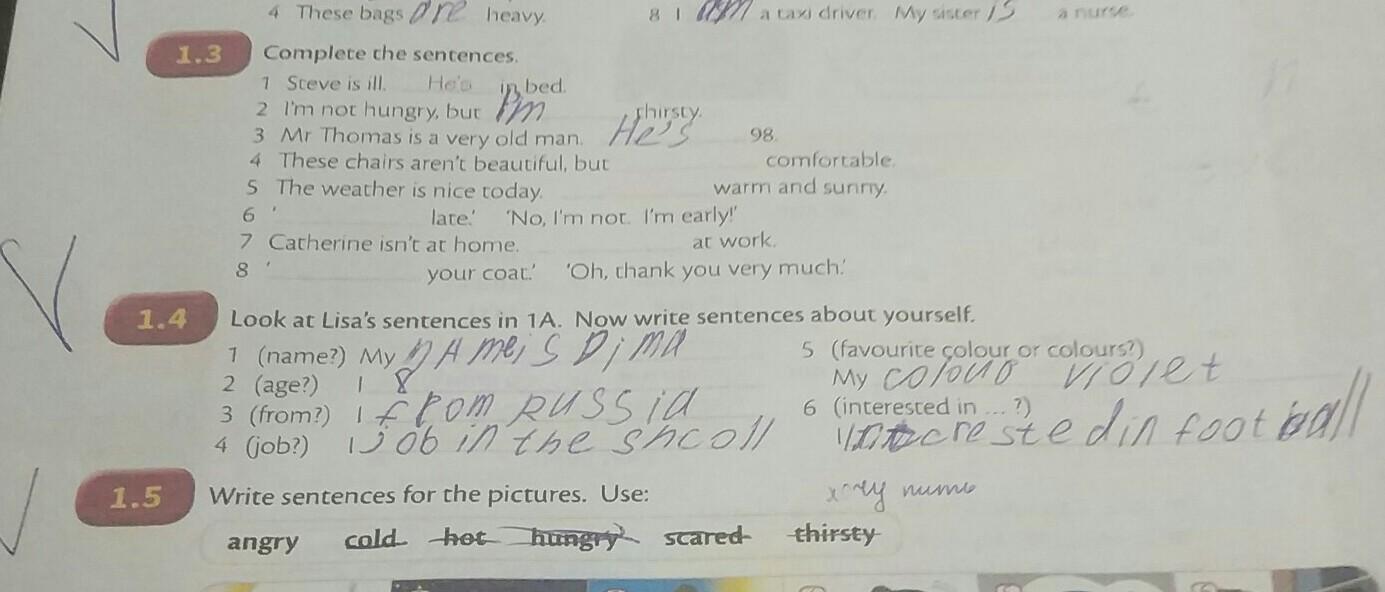 4 These bags are heavy. 8 I am a taxi driver. My sister is a nurse.
1.3 Complete the sentences.
1 Steve is ill. He's in bed.
2 I'm not hungry, but I'm thirsty.
3 Mr Thomas is a very old man. He's 98.
4 These chairs aren't beautiful, but comfortable.
5 The weather is nice today. warm and sunny.
6 ' late.' 'No, I'm not. I'm early!'
7 Catherine isn't at home. at work.
8 ' your coat.' 'Oh, thank you very much.'
1.4 Look at Lisa's sentences in 1A. Now write sentences about yourself.
1 (name?) My nAme is Dima
2 (age?) I 8
3 (from?) I from Russia
4 (job?) I job in the shcoll
5 (favourite colour or colours?)
My violet
6 (interested in ... ?)
I football
1.5 Write sentences for the pictures. Use:
angry cold hot hungry scared thirsty